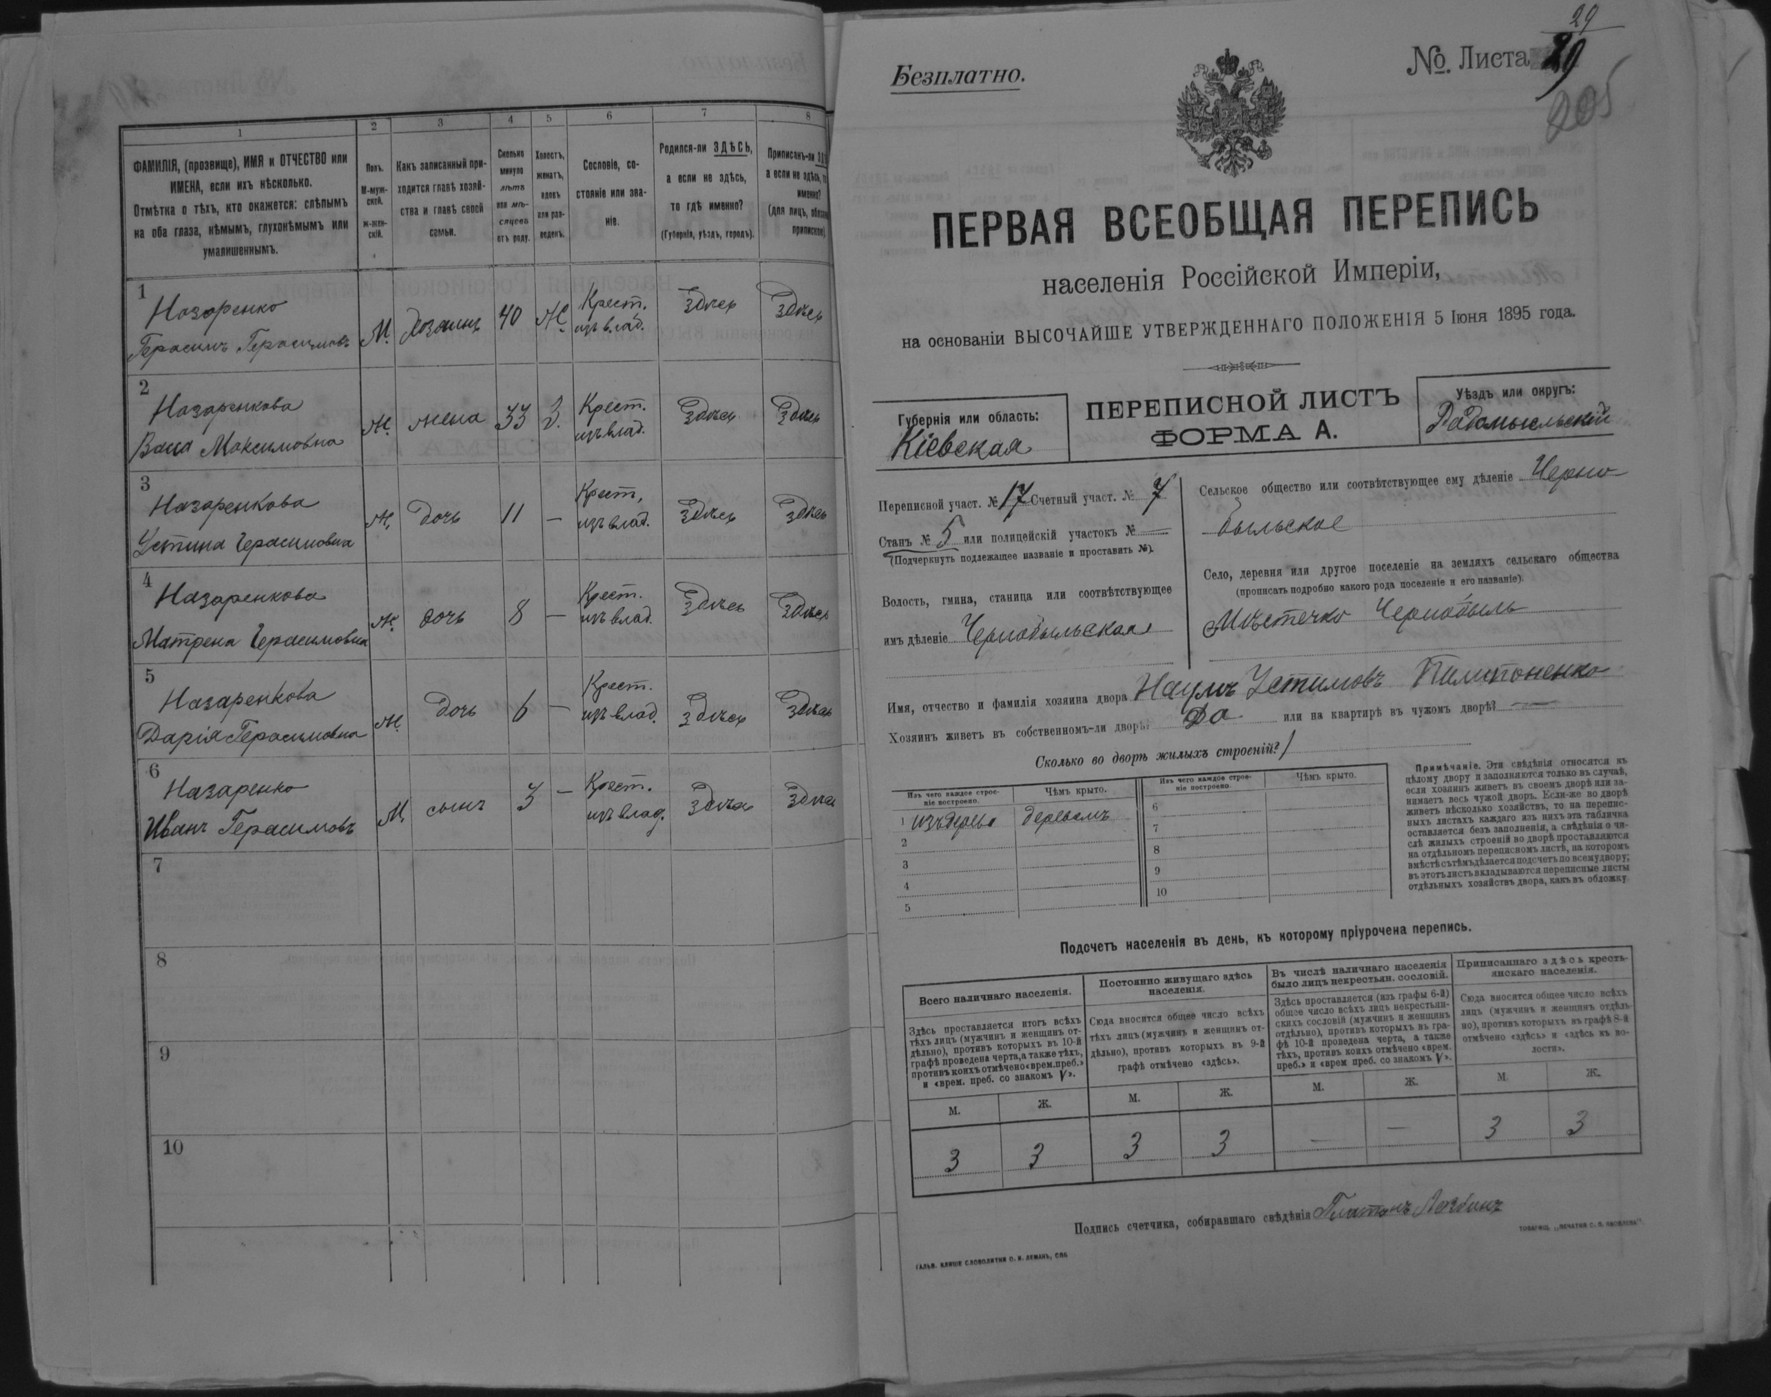 1
2
3
4
5
6
7
8
ФАМИЛІЯ, (прозвище), ИМЯ и ОТЧЕСТВО или
ИМЕНА, если ихъ нѣсколько.
Отмѣтка о тѣхъ, кто окажется: слѣпымъ
на оба глаза, нѣмымъ, глухонѣмымъ или
умалишеннымъ.
Полъ.
М-муж-
ской.
Ж-жен-
скій.
Какъ записанный при-
ходится главѣ хозяй-
ства и главѣ своей
семьи.
Сколько
минуло
лѣтъ
или мѣ-
сяцевъ
отъ роду.
Холостъ,
женатъ,
вдовъ
или раз-
веденъ.
Сословіе, со-
стояніе или зва-
ніе.
Родился-ли ЗДѢСЬ,
а если не здѣсь,
то гдѣ именно?
(Губернія, уѣздъ, городъ).
Приписанъ-ли
а если не здѣсь,
именно?
(для лицъ,
1
Назаренко
Герасимъ Герасимовъ
М.
Хозяинъ
40
Ж.
Крест.
изъ влад.
Здѣсь
Здѣсь
2
Назаренкова
Максимовна
Ж.
жена
33
З.
Крест.
изъ влад.
Здѣсь
Здѣсь
3
Назаренкова
Устина Герасимовна
Ж.
дочь
11
—
Крест.
изъ влад.
Здѣсь
Здѣсь
4
Назаренкова
Матрена Герасимовна
Ж.
дочь
8
—
Крест.
изъ влад.
Здѣсь
Здѣсь
5
Назаренкова
Дарія Герасимовна
Ж.
Дочь
6
—
Крест.
изъ влад.
Здѣсь
Здѣсь
6
Назаренко
Иванъ Герасимовъ
М.
сынъ
3
—
Крест.
изъ влад.
Здѣсь
Здѣсь
7
8
9
10
29
Безплатно.
№. Листа 29
205
ПЕРВАЯ ВСЕОБЩАЯ ПЕРЕПИСЬ
населенія Россійской Имперіи,
на основаніи ВЫСОЧАЙШЕ УТВЕРЖДЕННАГО ПОЛОЖЕНІЯ 5 Іюня 1895 года.
Губернія или область:
Кіевская
ПЕРЕПИСНОЙ ЛИСТЪ
ФОРМА А.
Уѣздъ или округъ:
Радомысльскій
Переписной участ. № 17 Счетный участ. № 7
Станъ № 5 или полицейскій участокъ №
(Подчеркнуть подлежащее названіе и проставить №).
Волость, гмина, станица или соотвѣтствующее
имъ дѣленіе Чернобыльская
Сельское общество или соотвѣтствующее ему дѣленіе Черно
быльское
Село, деревня или другое поселеніе на земляхъ сельскаго общества
(прописать подробно какого рода поселеніе и его названіе).
Мѣстечко Чернобыль
Имя, отчество и фамилія хозяина двора Наумъ Устимовъ Пилипоненко
Хозяинъ живетъ въ собственномъ-ли дворѣ? Да или на квартирѣ въ чужомъ дворѣ? —
Сколько во дворѣ жилыхъ строеній? 1
Изъ чего каждое строе-
ніе построено.
Чѣмъ крыто.
Изъ чего каждое строе-
ніе построено.
Чѣмъ крыто.
1 изъ дерева
деревомъ
2
3
4
5
6
7
8
9
10
Примѣчаніе. Эти свѣдѣнія относятся къ
цѣлому двору и заполняются только въ случаѣ,
если хозяинъ живетъ въ своемъ дворѣ или за-
нимаетъ весь чужой дворъ. Если-же во дворѣ
живетъ нѣсколько хозяйствъ, то на перепис-
ныхъ листахъ каждаго изъ нихъ эта табличка
оставляется безъ заполненія, а свѣдѣнія о чи-
слѣ жилыхъ строеній во дворѣ проставляются
на отдѣльномъ переписномъ листѣ, на которомъ
вмѣстѣ съ тѣмъ дѣлается подсчетъ по всему двору;
въ этотъ листъ вкладываются переписные листы
отдѣльныхъ хозяйствъ двора, какъ въ обложку.
Подсчетъ населенія въ день, къ которому пріурочена перепись.
Всего наличнаго населенія.
Здѣсь проставляется итогъ всѣхъ
тѣхъ лицъ (мужчинъ и женщинъ от-
дѣльно), противъ которыхъ въ 10-й
графѣ проведена черта, а также тѣхъ,
противъ коихъ отмѣчено «врем. преб.»
и «врем. преб. со знакомъ V».
Постоянно живущаго здѣсь
населенія.
Сюда вносится общее число всѣхъ
тѣхъ лицъ (мужчинъ и женщинъ от-
дѣльно), противъ которыхъ въ 9-й
графѣ отмѣчено «здѣсь».
Въ числѣ наличнаго населенія
было лицъ некрестьян. сословій.
Здѣсь проставляется (изъ графы 6-й)
общее число всѣхъ лицъ некрестьян-
скихъ сословій (мужчинъ и женщинъ
отдѣльно), противъ которыхъ въ гра-
фѣ 10-й проведена черта, а также
тѣхъ, противъ коихъ отмѣчено «врем.
преб.» и «врем преб. со знакомъ V».
Приписаннаго здѣсь кресть-
янскаго населенія.
Сюда вносится общее число всѣхъ
лицъ (мужчинъ и женщинъ отдѣль-
но), противъ которыхъ въ графѣ 8-й
отмѣчено «здѣсь» и «здѣсь въ во-
лости».
М.
Ж.
М.
Ж.
М.
Ж.
М.
Ж.
3
3
3
3
—
—
3
3
Подпись счетчика, собиравшаго свѣдѣнія Платонъ
ГАЛЬВ. КЛИШЕ СЛОВОЛИТНИ О. И. ЛЕМАНЪ, СПБ.